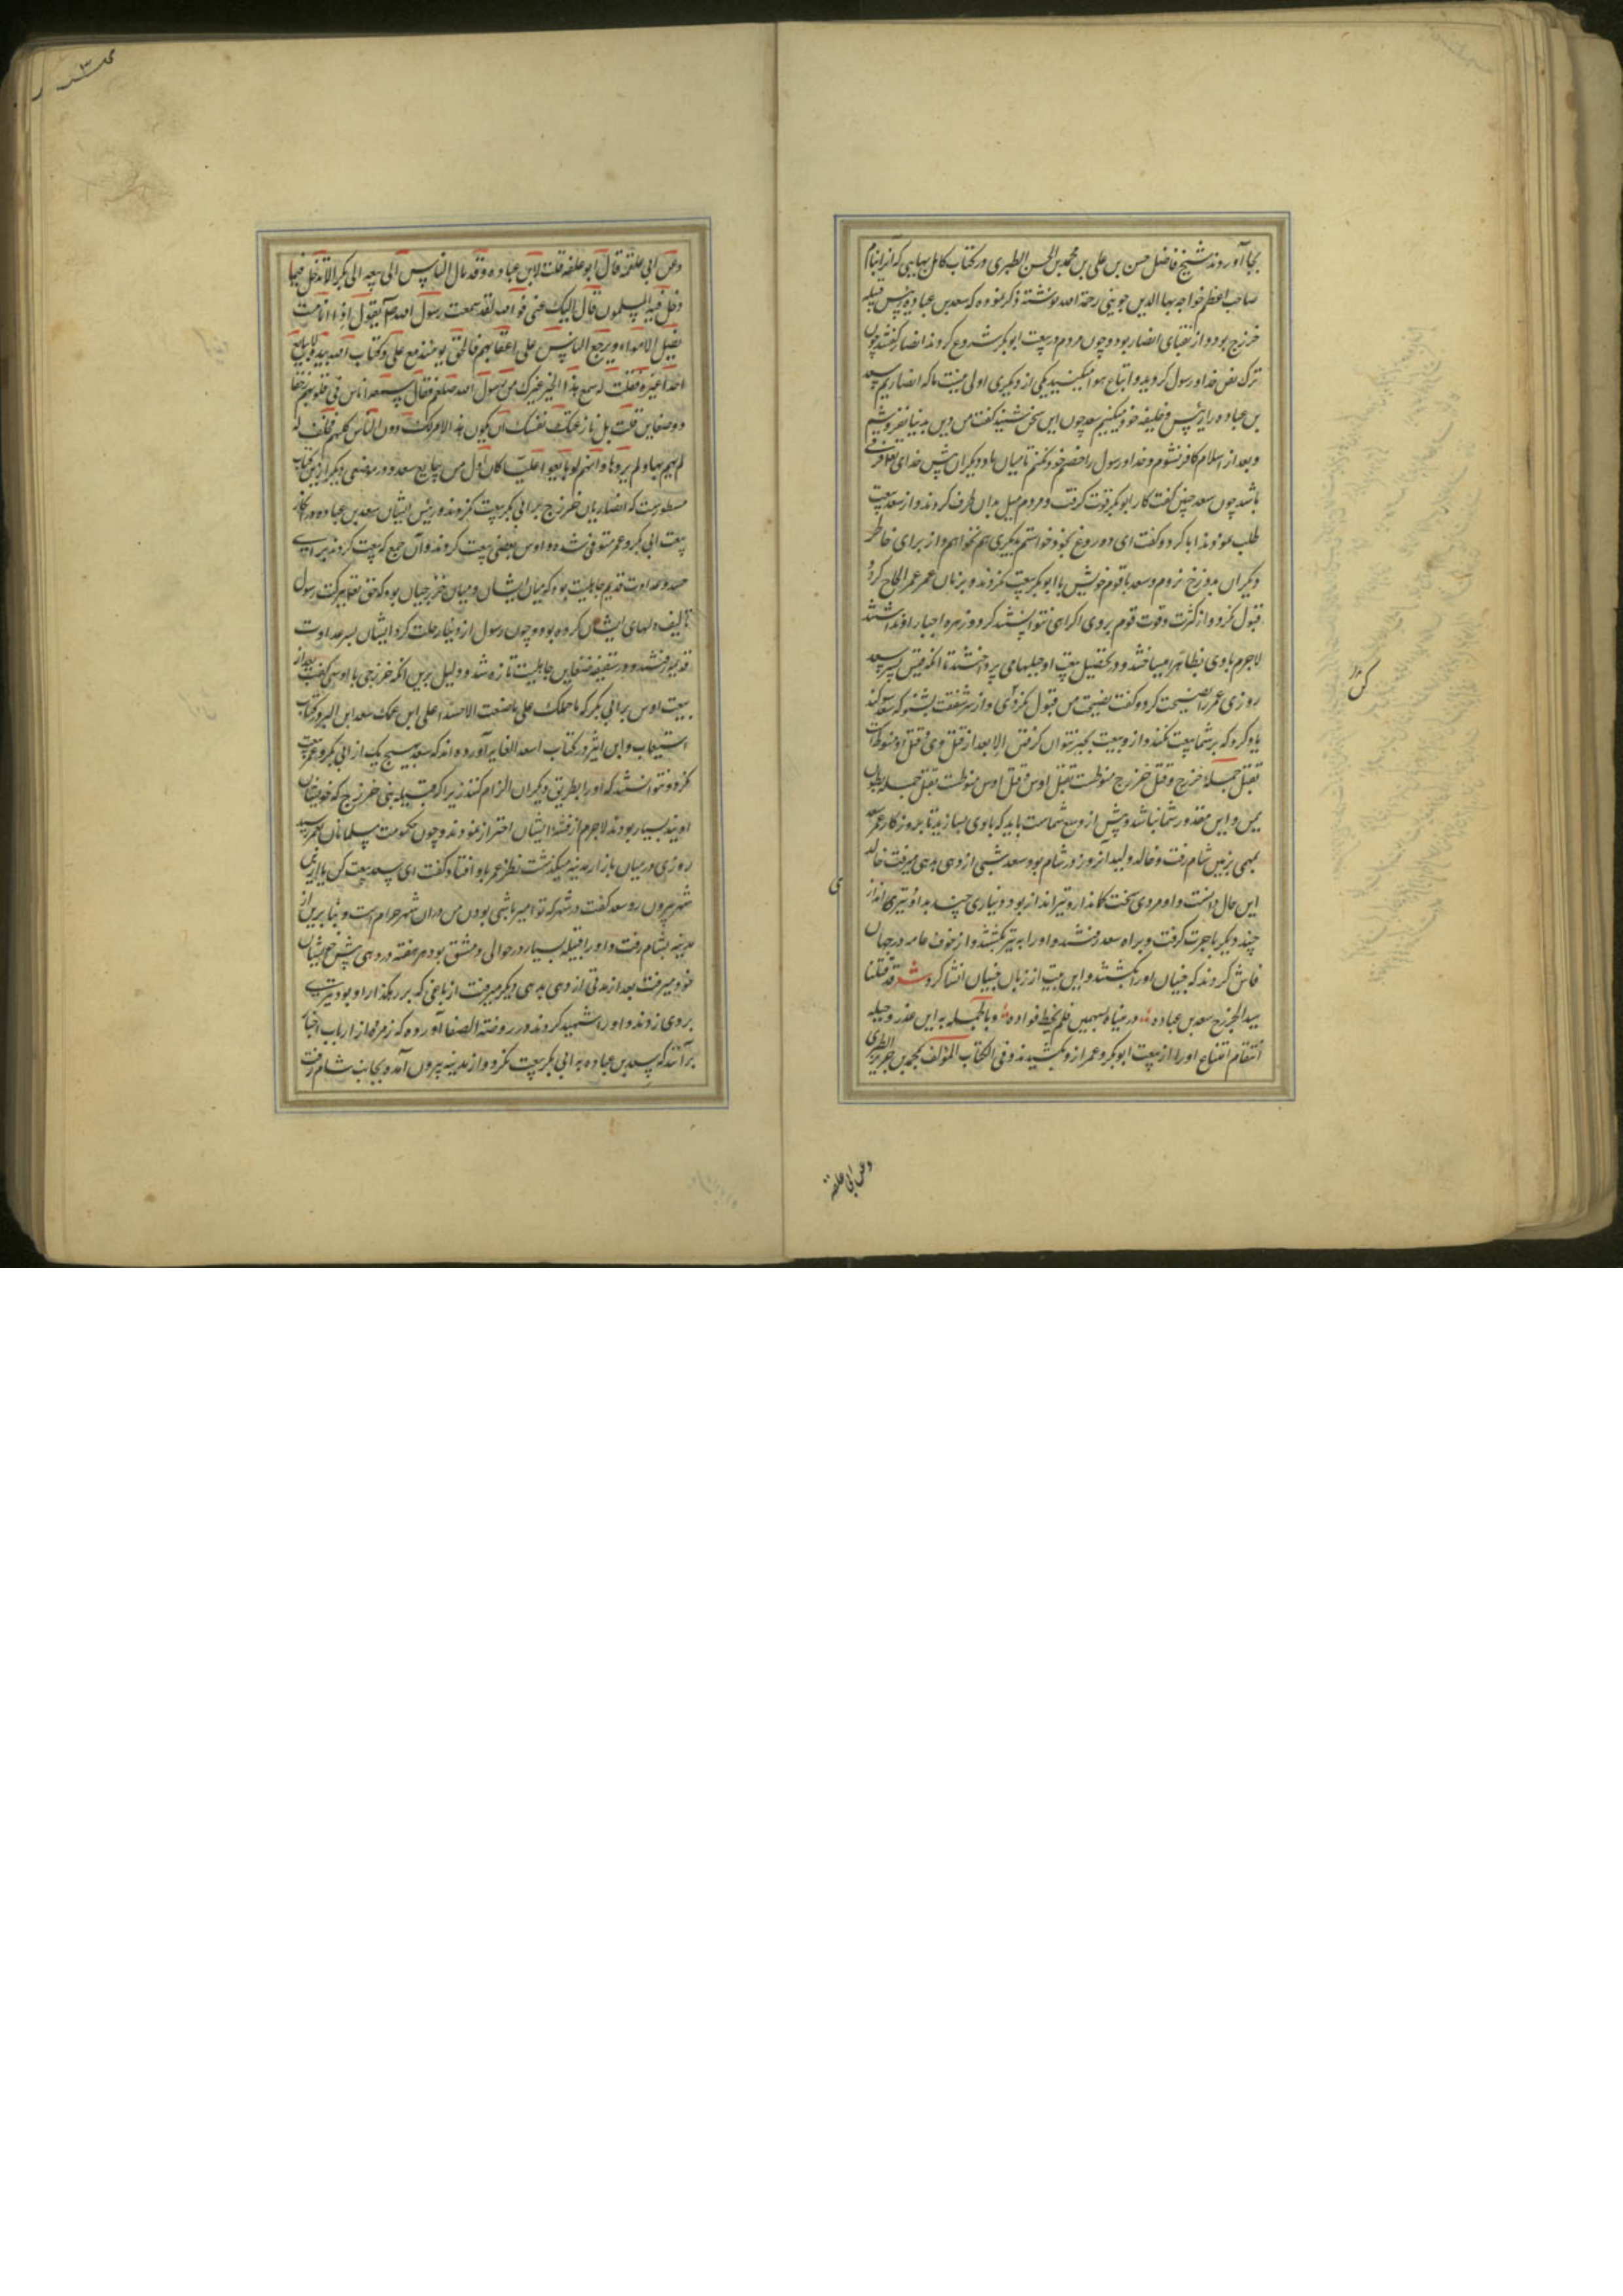 بجا آوردند شیخ فاضل حسن بن علی بن محمد بن الحسن الطبری در کتاب کامل بهایی که آنرا بنام
صاحب اعظم خواجه بهاالدین جوینی رحمة الله نوشته ذکر نموده که سعد بن عباده رئیس قبیله
خزرج بود و از نقبای انصار بود و چون مردم در بیعت ابوبکر شروع کردند انصار گفتند چون
ترک نص خدا و رسول کردید و اتباع هوا میکنید یکی از دیگری اولی نیست ما که انصاریم سعد
بن عباده را رئیس و خلیفه خود میکنیم سعد چون این سخن شنید گفت من دین بدنیا نفروشم
و بعد از اسلام کافر نشوم و خدا و رسول را خصم خود نکنم تا میان باد دیگران پیش خدای تعالی فرقی
باشد چون سعد چنین گفت کار ابوبکر قوت گرفت و مردم میل بدان طرف کردند و از سعد بیعت
طلب نمودند ابا کرد و گفت ای دروغ بخود خواستم بدیگری هم نخواهم و از برای خاطر
دیگران بدوزخ نروم و سعد با قوم خویش با ابوبکر بیعت نکردند و بر زبان عمر عمر الحاح کرد و
قبول نکرد و از کثرت و قوت قوم بروی اکراهی نتوانستند کرد و زهره اجبار او نداشتند
لاجرم با وی بظاهر میساختند و در تحصیل بیعت او حیلها می پرداختند تا آنکه قیس پسر سعد
روزی عمر را نصیحت کرد و گفت نصیحت من قبول کن و از سر شفقت بشنو که سعد سوگند
یاد کرد که بر شما بیعت نکند و از و بیعت بجبر نتوان گرفتن الا بعد از قتل وی و قتل او منوط است
بقتل جمله خزرج و قتل خزرج منوطست بقتل اوس و قتل اوس منوطست بقتل جمله بطون
یمن و این مقدور شما نباشد و بیش از وسع شماست باید که با وی بسازید تا بروزگار عمر سعد
بمهمی بزمین شام رفت و خالد ولید آنروز در شام بود و سعد شبی از دهی بدهی میرفت خالد
این حال دانست و او مردی سخت کماندار و تیرانداز بود دیناری چند بداد و تیری انداز
چند دیگر باجرت گرفت و براه سعد رفتند و او را به تیر بکشتند و از خوف عامه در جهان
فاش کردند که جنیان او را بکشتند و این بیت از زبان جنیان انشا کرد شعر قد قتلنا
سید الخزرج سعد بن عباده ورمیناه بسهمین فلم نخط فواده و بالجمله به این عذر و حیله
انتقام امتناع او را از بیعت ابوبکر و عمر ازو کشیدند و فی الکتاب المؤلف لمحمد بن جریر الطبری
وعن ابی علقمه
وعن ابی علقمة قال ابو علقمه قلت لابن عباده و قد مال الناس الی بیعه ابی بکر الا تدخل فیما
دخل فیه المسلمون قال الیک عنی فوالله لقد سمعت رسول الله ص یقول اذا انا مت
تضل الاهواء و یرجع الناس علی اعقابهم فالحق یومئذ مع علی و کتاب الله بیده لا نبایع
احدا غیره فقلت له سمع هذا الخبر غیرک من رسول الله صلعم فقال سمعه اناس فی قلوبهم احقاد
و ضغاین قلت بل نازعتک نفسک ان یکون هذا الامر لک دون الناس کلهم فحلف له
لم یهم بها و لم یردها و انهم لو بایعوا علیا کان اول من بایع سعد و در موضعی دیگر ازین کتاب
مسطورست که انصاریان خزرج بر ابی بکر بیعت نکردند و رئیس ایشان سعد بن عباده در انکار
بیعت ابی بکر و عمر متوفی شد و اوس بعضی بیعت کردند و آن جمع که بیعت کردند برای
حسد و عداوت قدیم جاهلیت بود که میان ایشان و میان خزرجیان بود که حق تعالی ببرکت رسول
تالیف دلهای ایشان کرده بود و چون رسول از دنیا رحلت کرد ایشان بسر عداوت
قدیم رفتند و در سقیفه ضغاین جاهلیت تازه شد و دلیل برین آنکه خزرجی با اوسی گفت بعد از
بیعت اوس بر ابی بکر که ما حملک علی ما صنعت الا حسدا علی ابن عمک سعد ابن البر در کتاب
استیعاب و ابن اثیر در کتاب اسد الغابه آورده اند که سعد بهیچ یک از ابی بکر و عمر بیعت
نکرد و نتوانستند که او را بطریق دیگران الزام کنند زیرا که قبیله بنی خزرج که خویشان
اویند بسیار بودند لاجرم از فتنه ایشان احتراز نمودند و چون حکومت مسلمانان بعمر رسید
روزی در میان بازار مدینه میگذشت نظر عمر باو افتاد گفت ای سعد بیعت کن یا ازین
شهر بیرون رو سعد گفت در شهر که تو امیر باشی بودن من در آن شهر حرام است و بنا برین از
مدینه بشام رفت و او را قبیله بسیار در حوالی دمشق بود هر هفته در دهی پیش خویشان
خود میرفت بعد از مدتی از دهی بدهی دیگر میرفت از باغی که بر رهگذار او بود تیری
بر وی زدند و او را شهید کردند در روضة الصفا آورده که زمره از ارباب اخبار
بر آنند که سعد بن عباده به ابی بکر بیعت نکرد و از مدینه بیرون آمده بجانب شام رفت